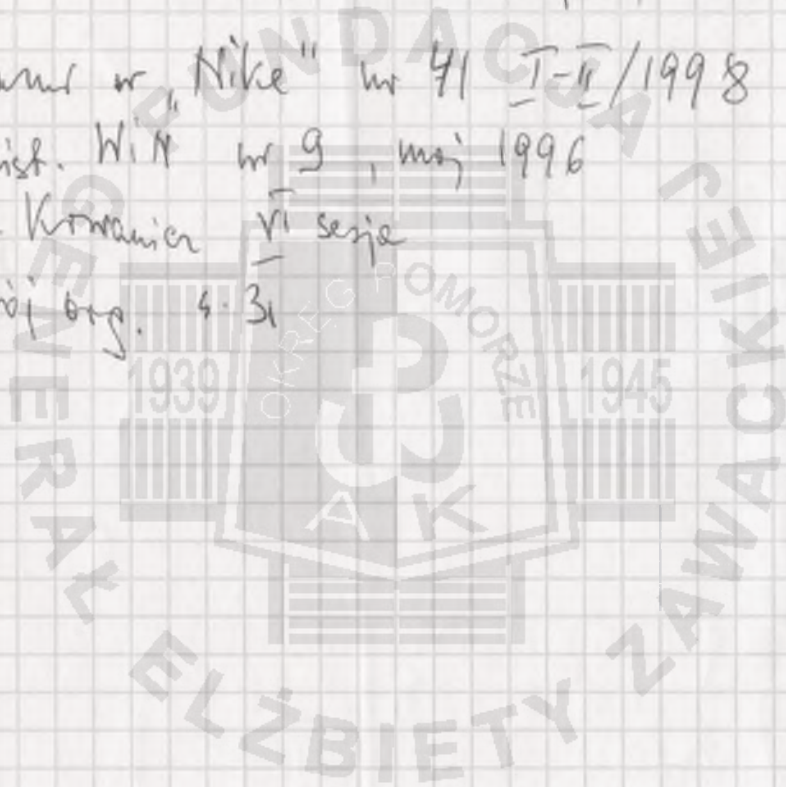 w „Nike" nr 41 I-II/1998
ist. WiN nr 9, maj 1996
Krowanicz VI sesja
ój org. s. 31
FUNDACJA GENERAŁ ELŻBIETY ZAWACKIEJ
OKRĘG POMORZE
1939
1945
AK